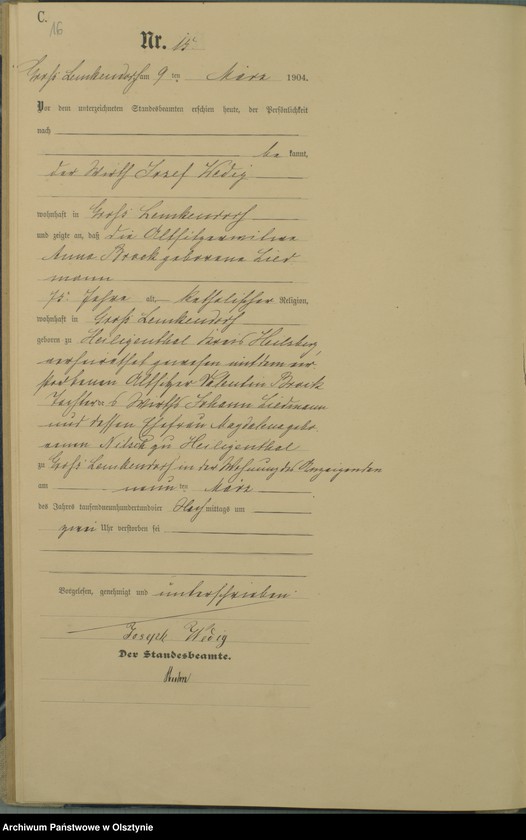 C.
16
Nr. 15
Groß Lemkendorf am 9 ten März 1904.
Vor dem unterzeichneten Standesbeamten erschien heute, der Persönlichkeit
nach
be kannt,
der Wirth Josef Wedig
wohnhaft in Groß Lemkendorf
und zeigte an, daß die Altsitzerwitwe
Anna Brock geborene Lied
mann
75 Jahre alt, katholischer Religion,
wohnhaft in Groß Lemkendorf
geboren zu Heiligenthal Kreis Heilsberg,
verheirathet gewesen mit dem ver
storbenen Altsitzer Valentin Brock
Tochter des Wirths Johann Liedmann
und dessen Ehefrau Magdalena gebo
renen Nitsch zu Heiligenthal
zu Groß Lemkendorf in der Wohnung des Anzeigenden
am neun ten März
des Jahres tausendneunhundertundvier Nachmittags um
zwei Uhr verstorben sei
Vorgelesen, genehmigt und unterschrieben
Joseph Wedig
Der Standesbeamte.
Archiwum Państwowe w Olsztynie